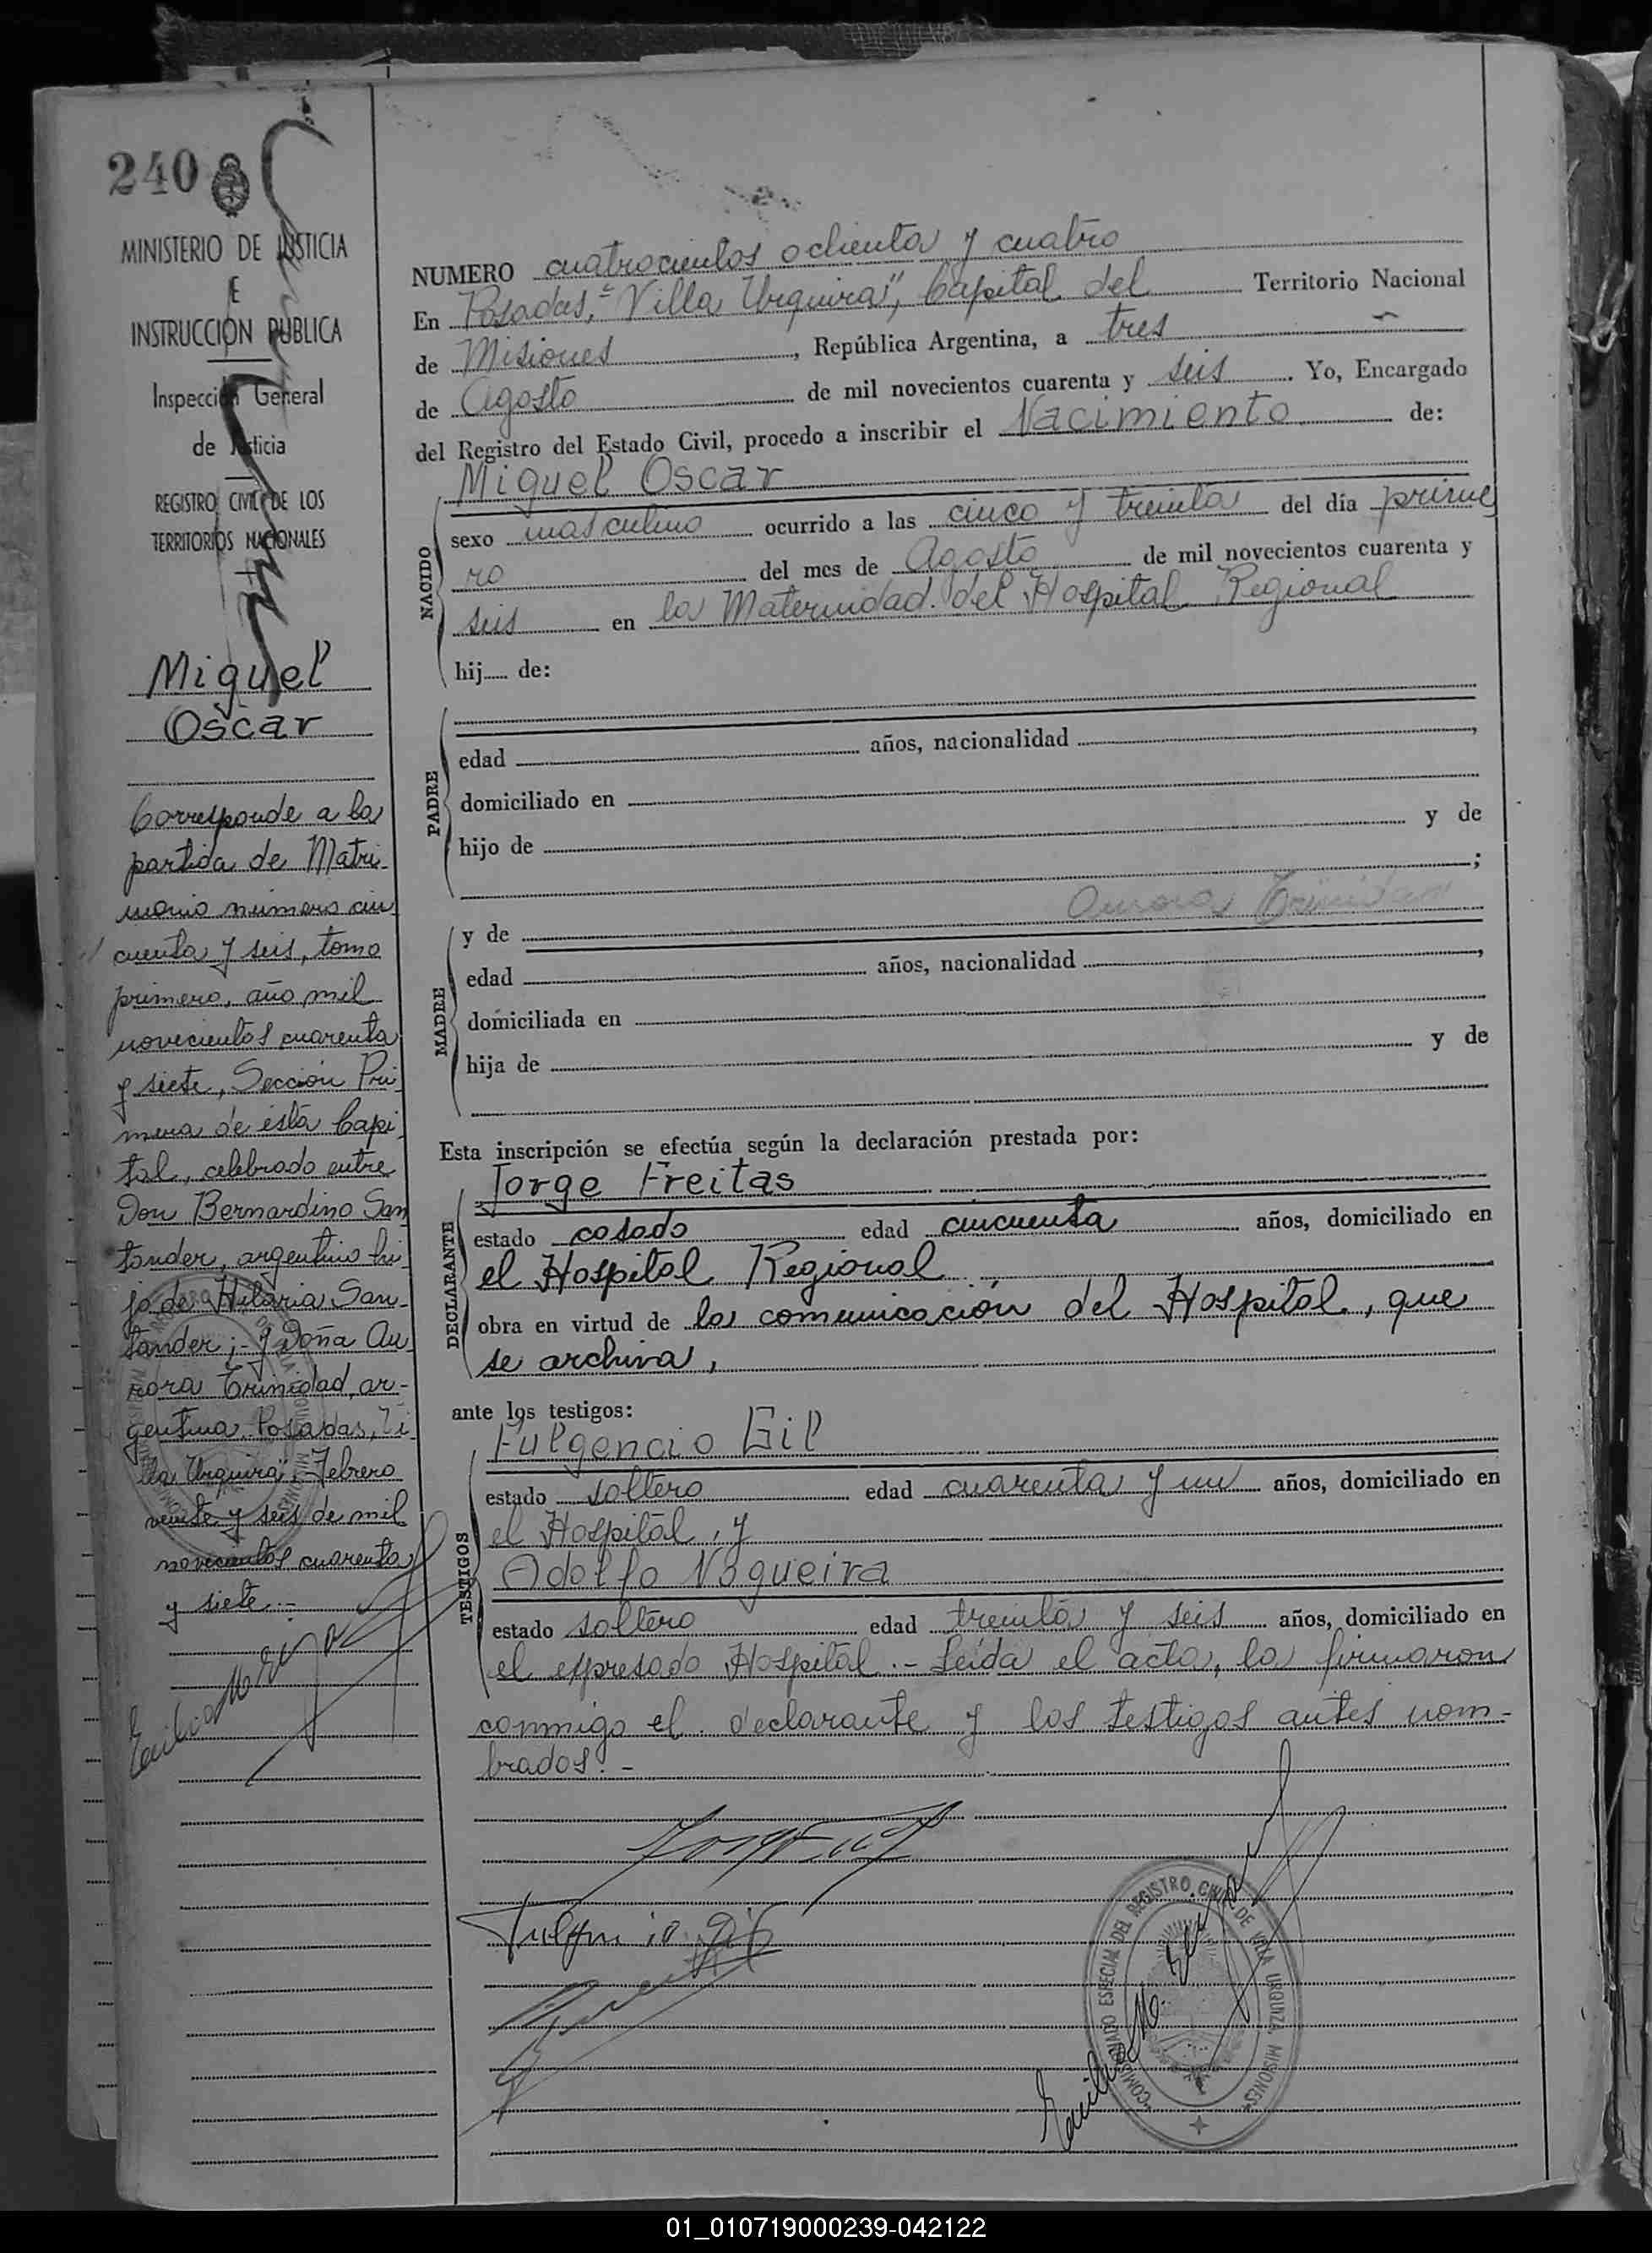 240
MINISTERIO DE JUSTICIA
E
INSTRUCCION PUBLICA
Inspección General
de Justicia
REGISTRO CIVIL DE LOS
TERRITORIOS NACIONALES
Miguel
Oscar
Corresponde a la
partida de Matri-
monio número cin
cuenta y seis, tomo
primero, año mil
novecientos cuarenta
y siete, Sección Pri
mera de esta Capi
tal, celebrado entre
Don Bernardino San
tander, argentino hi
jo de Hilaria San-
tander; - y Doña Au
rora Trinidad, ar-
gentina. Posadas, Vi
lla Urquiza", Febrero
veinte y seis de mil
novecientos cuarenta
y siete.-
NUMERO cuatrocientos ochenta y cuatro
En Posadas, "Villa Urquiza", Capital del Territorio Nacional
de Misiones, República Argentina, a tres
de Agosto de mil novecientos cuarenta y seis. Yo, Encargado
del Registro del Estado Civil, procedo a inscribir el Nacimiento de:
Miguel Oscar
NACIDO
sexo masculino ocurrido a las cinco y treinta del día prime
ro del mes de Agosto de mil novecientos cuarenta y
seis en la Maternidad del Hospital Regional
hij..... de:
PADRE
edad años, nacionalidad ,
domiciliado en
hijo de y de
;
MADRE
y de Aurora Trinidad
edad años, nacionalidad ,
domiciliada en
hija de y de
Esta inscripción se efectúa según la declaración prestada por:
DECLARANTE
Jorge Freitas
estado casado edad cincuenta años, domiciliado en
el Hospital Regional
obra en virtud de la comunicación del Hospital, que
se archiva,
ante los testigos:
TESTIGOS
Fulgencio Gil
estado soltero edad cuarenta y un años, domiciliado en
el Hospital, y
Adolfo Nogueira
estado soltero edad treinta y seis años, domiciliado en
el expresado Hospital.- Leída el acta, la firmaron
conmigo el declarante y los testigos antes nom-
brados.-
Fulgencio Gil
COMISIONADO ESPECIAL DEL REGISTRO CIVIL DE VILLA URQUIZA MISIONES
01_010719000239-042122